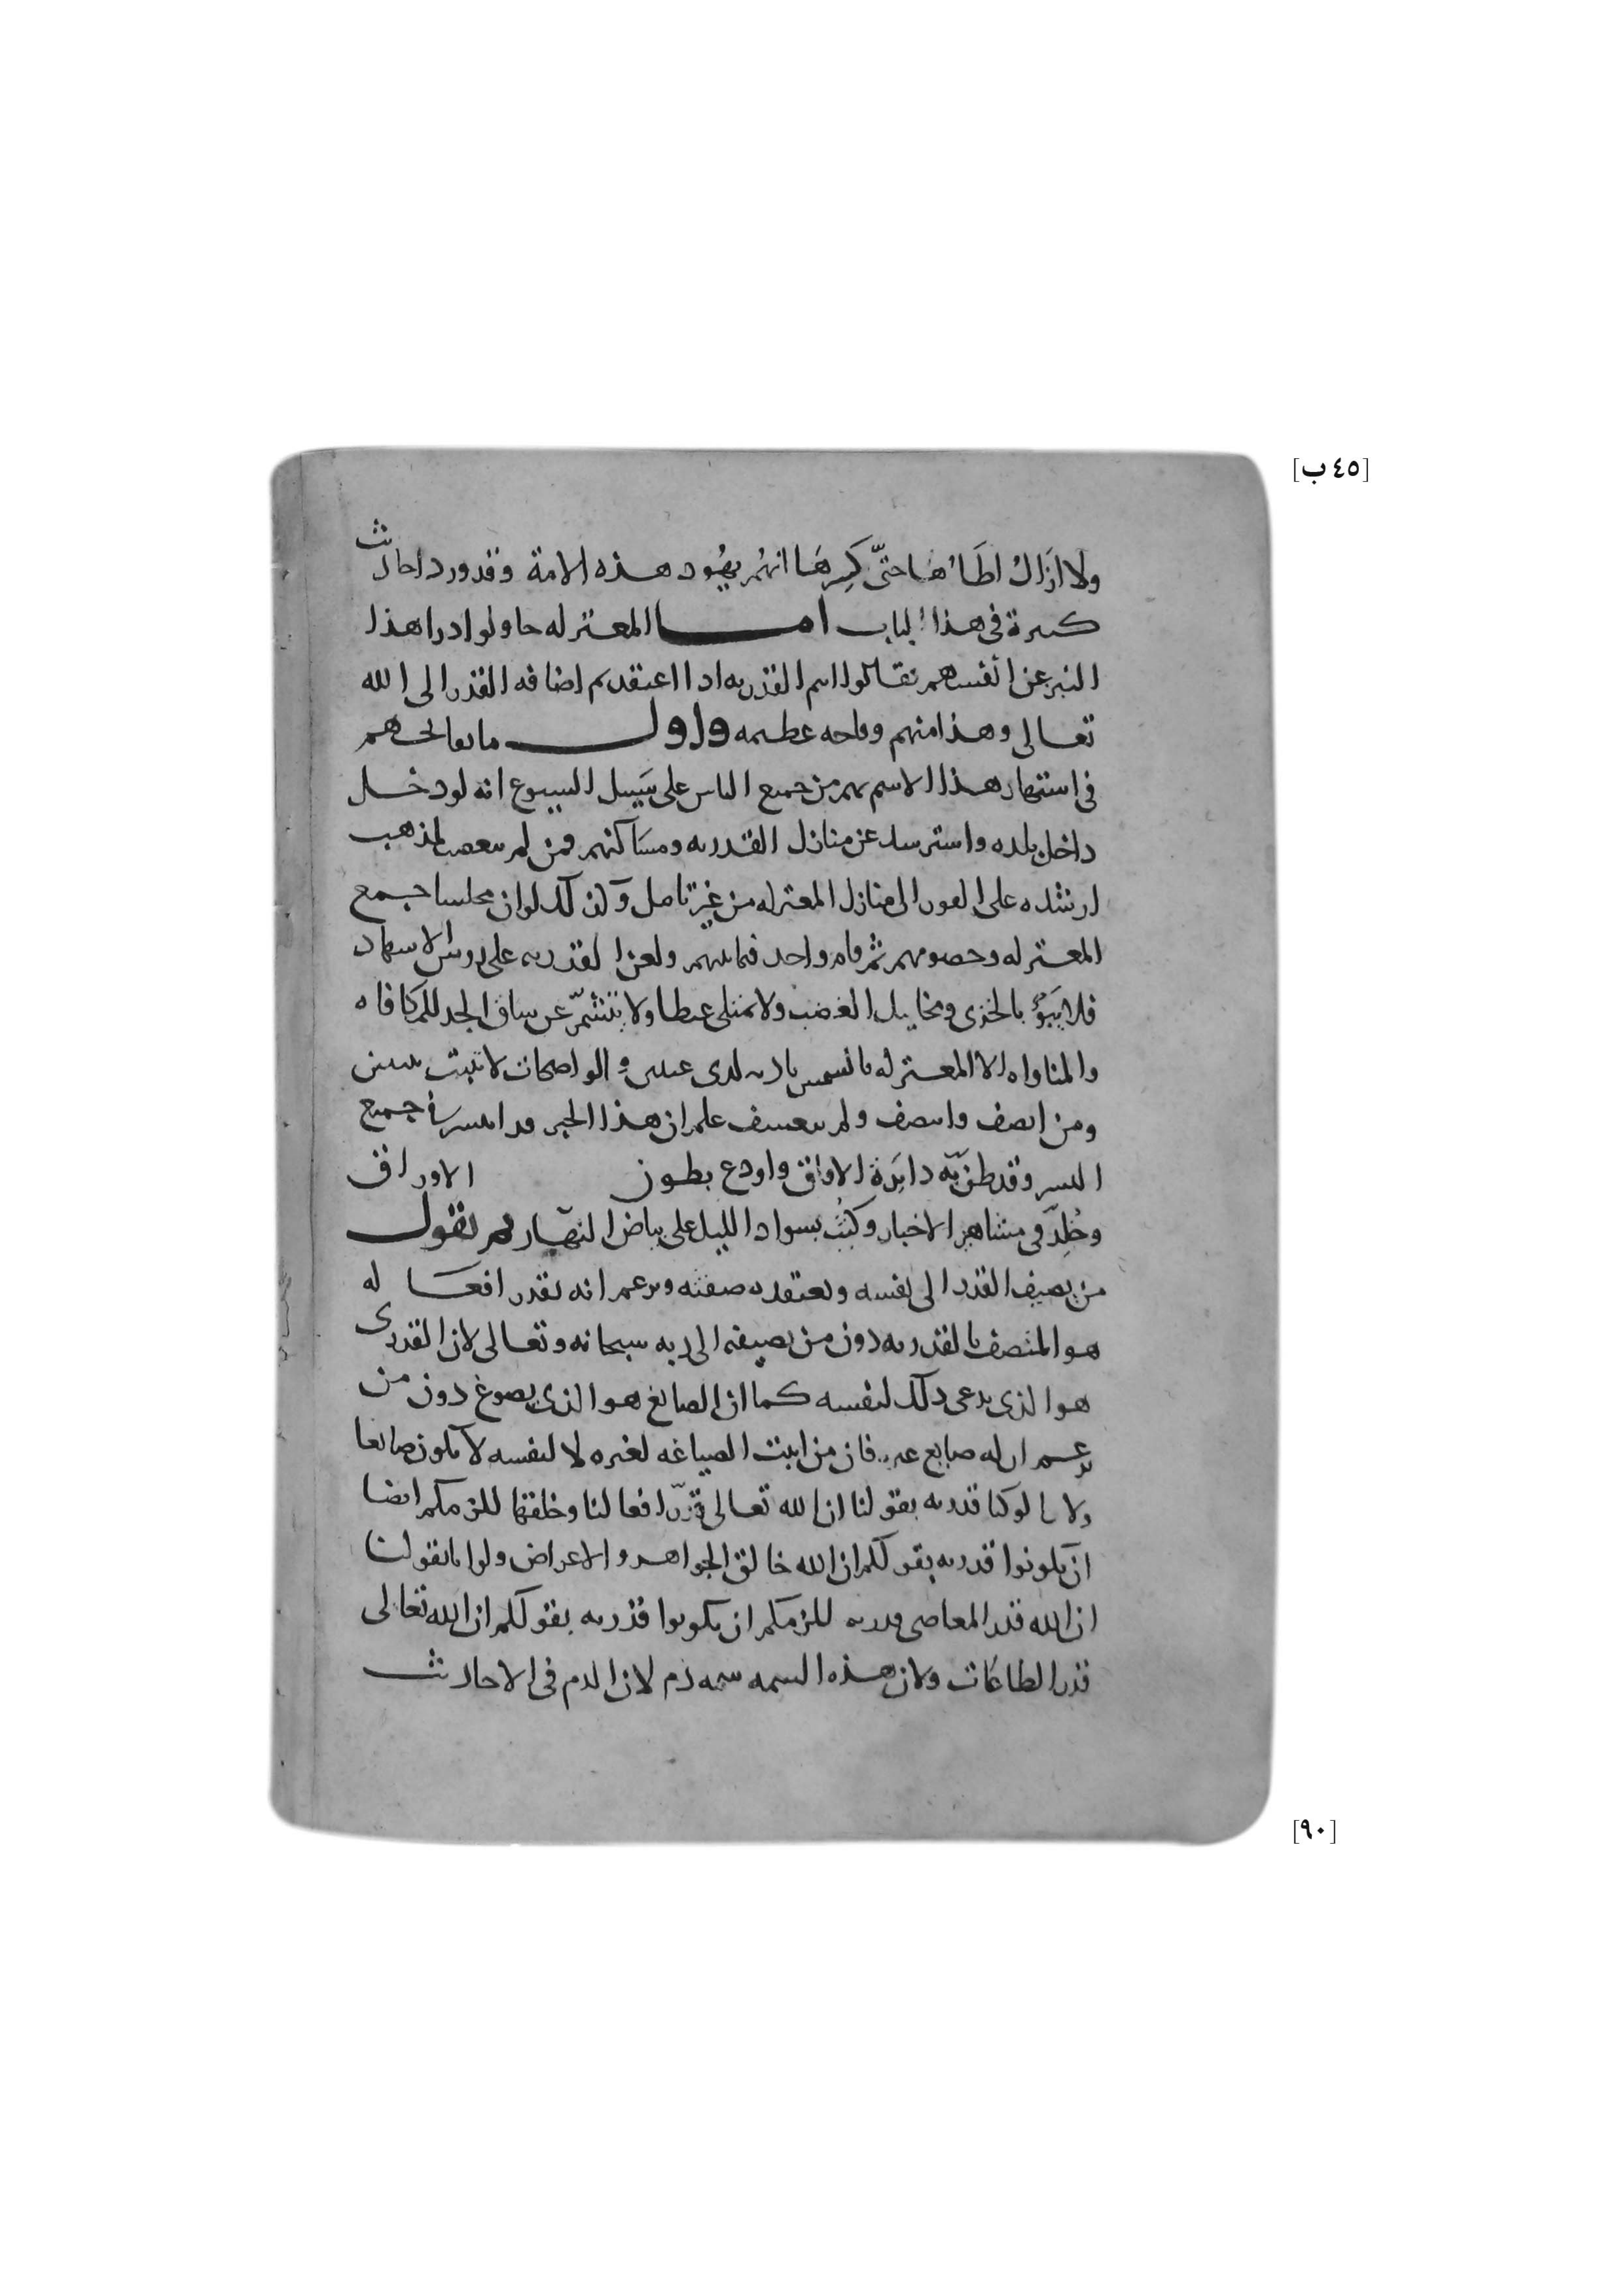 [٤٥ ب]
ولا ازال اطَأُهَا حتّى كَرِهَا انهُم يهُود هذه الامة وقد ورد احاديث
كبيرة في هذا الباب اما المعتزله حاولوا درا هذا
النبز عن انفسهم فقالوا اسم القدريه اذا اعتقدتم اضافه القدر الى الله
تعالى وهذا منهم وقاحه عظيمه واول ما نفاتحهم
في استهار هذا الاسم بهم من جميع الناس على سَبيل الشيوع انه لو دخل
داخل بلده واسترسد عن منازل القدريه ومسَاكنهم فمن لم يتعصب لمذهب
ارشده على الفور الى منازل المعتزله من غير تامل وكذلك لو ان مجلسا جمع
المعتزله وخصومهم ثم قام واحد فيما بينهم ولعن القدريه على روس الاسهاد
فلا يَبوُء بالخزى ومخايل الغضب ولا يمتلى غيظا ولا يتشمّر عن ساق الجد للمكافاه
والمناواه الا المعتزله فالشمس باديه لدى عينين والواضحات لا تثبت
ومن انصف وانتصف ولم يتعسف علم ان هذا الخبر قد انتسر في جميع
البسر وقد طن به دايَرة الافاق واودع بطون الاوراق
وخُلِدّ في مشاهير الاخبار وكُتِبُ بسواد الليل على بياض النهار ثم نقول
من يضيف القدر الى نفسه ويعتقده صفته ويزعم انه يقدر افعاله
هو المتصف بالقدريه دون من يضيفه الى ربه سبحانه وتعالى لان القدرى
هو الذي يدعى ذلك لنفسه كما ان الصايغ هو الذي يصوغ دون من
يزعم ان له صايغ غيره فان من اثبت الصياغه لغيره لا لنفسه لا يكون صايغا
ولانا لو كنا قدريه بقولنا ان الله تعالى قدّر افعالنا وخلقها للزمكم ايضا
ان يكونوا قدريه بقولكم ان الله خالق الجواهر والاعراض ولو انا بقولنا
ان الله قدر المعاصى قدريه للزمكم ان يكونوا قدريه بقولكم ان الله تعالى
قدر الطاعَات ولان هذه السمه سمه ذم لان الذم في الاحاديث
[٩٠]